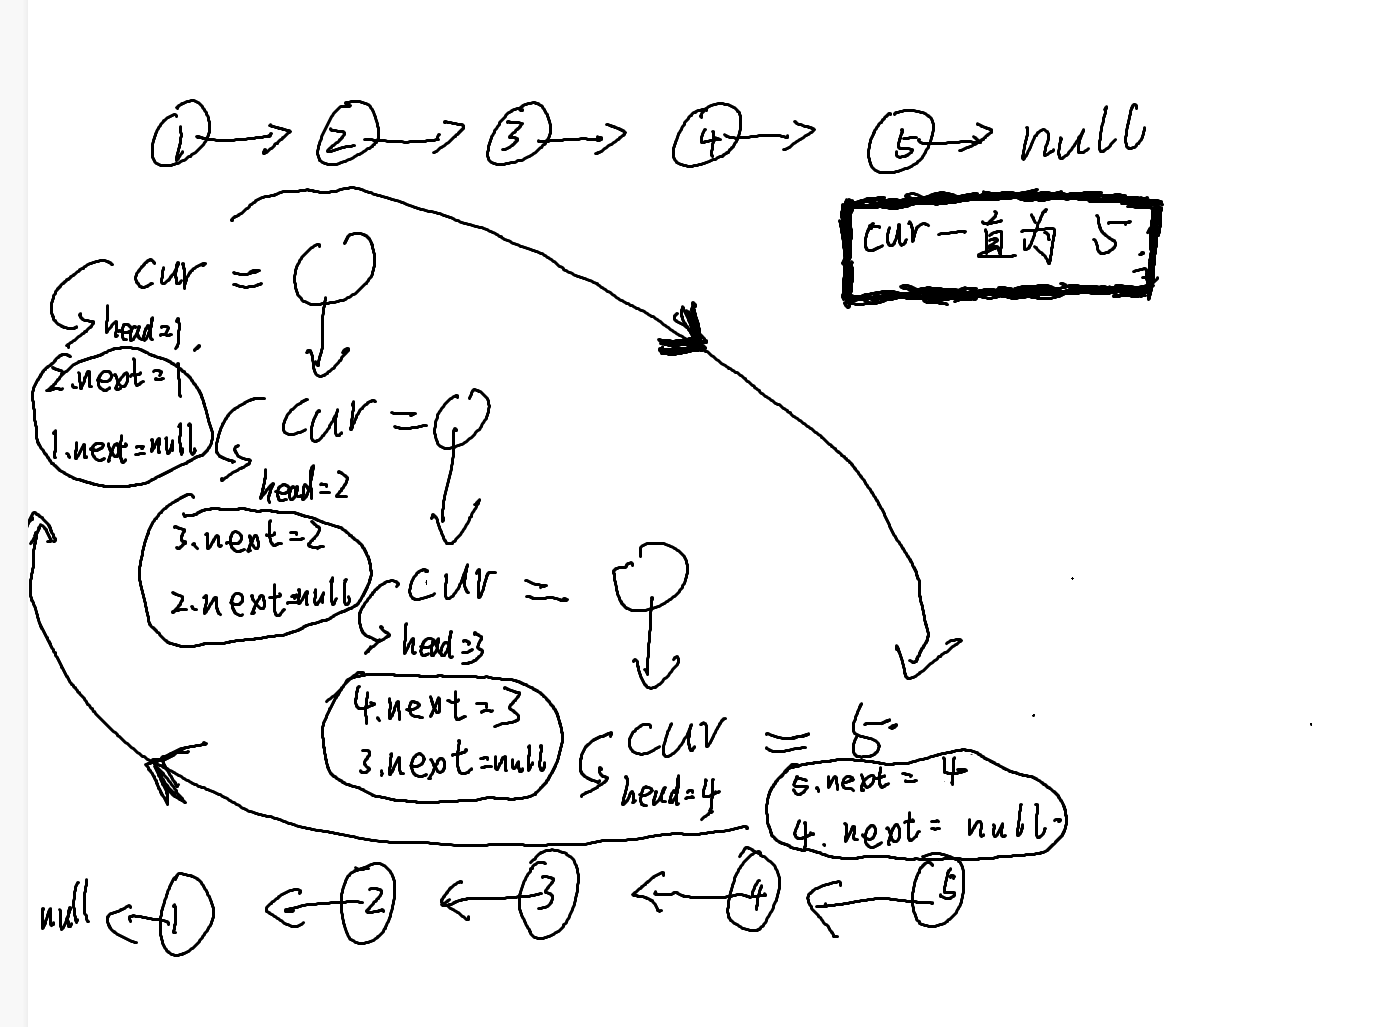 1 2 3 4 5 null
cur一直为 5.
cur =
head=1.
2.next=1
1.next=null
cur =
head=2
3.next=2
2.next=null
cur =
head=3
4.next=3
3.next=null
cur = 5
head=4
5.next= 4
4. next= null
null 1 2 3 4 5